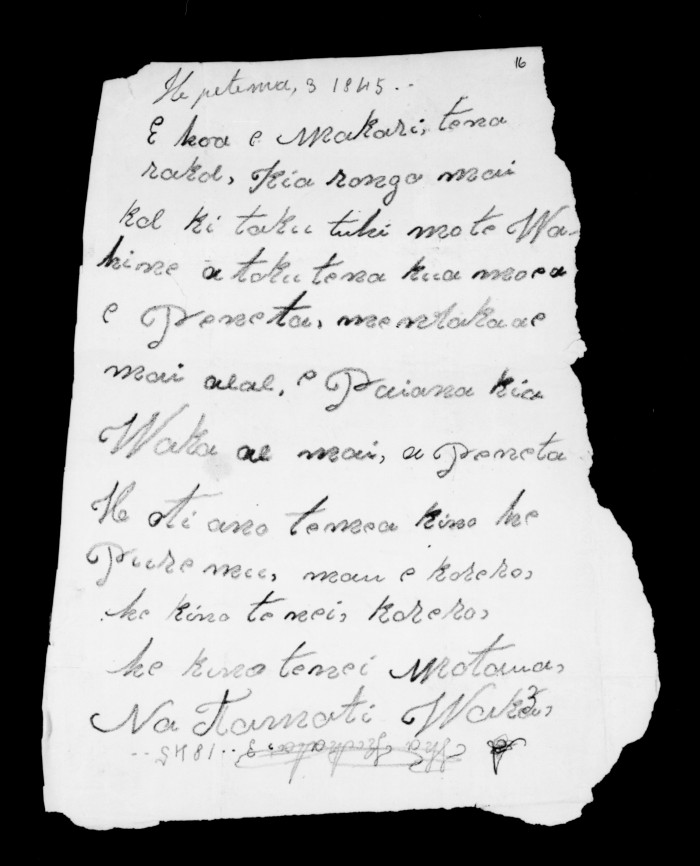 16
Hepetema, 3 1845..
E hoa e Makari, tena
rakoe, Kia rongo mai
koe ki taku tuhi mo te Wa-
hine a toku tena kua moea
e Peneta, me Wakaae
mai e Paiana kia
Waka ae mai, a Peneta
He oti ano te mea kino he
Puremu, mau e korero,
he kino tenei, korero,
he kino tenei Motaua,
Na Tamati Waka,
3..1845..